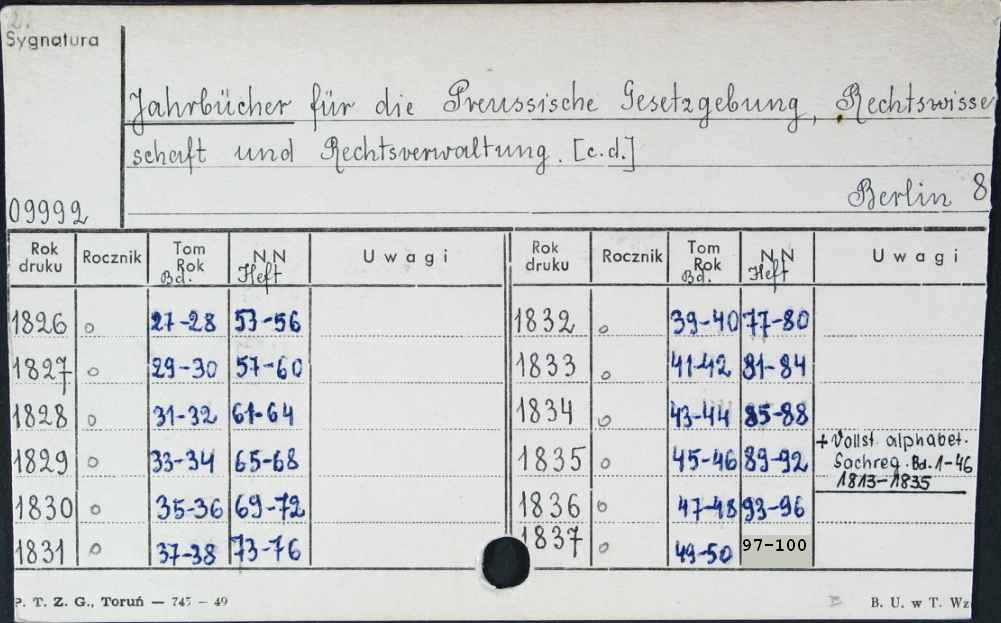 2.
Sygnatura
Jahrbücher für die Preussische Gesetzgebung, Rechtswisse
schaft und Rechtsverwaltung. [c.d.]
Berlin 8
09992
Rok druku Rocznik Tom Rok Bd. N N Heft Uwagi Rok druku Rocznik Tom Rok Bd. N N Heft Uwagi
1826 o 27-28 53-56 1832 o 39-40 77-80
1827 o 29-30 57-60 1833 o 41-42 81-84
1828 o 31-32 61-64 1834 o 43-44 85-88
1829 o 33-34 65-68 1835 o 45-46 89-92 + Vollst. alphabet.
Sachreg. Bd. 1-46
1813-1835
1830 o 35-36 69-72 1836 o 47-48 93-96
1831 o 37-38 73-76 1837 o 49-50 97-100
P. T. Z. G., Toruń — 745 — 49 B. U. w T. Wz